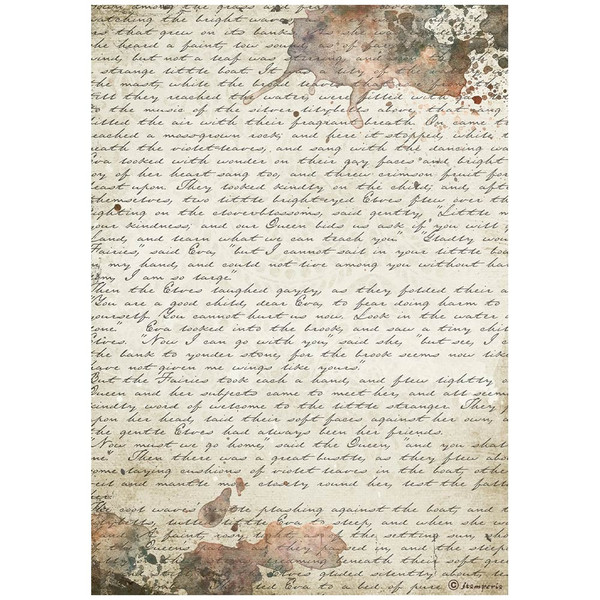 among the grass and
catching the bright waves
she heard a faint, low sound, as of far
and, but not a leaf was stirring
strange little boat. It
the mast, while the broad leaves
till they reached the water, were filled with
to the music of the silver lily-bells
filled the air with their fragrant breath. On came t
eached a moss-grown rock; and here it stopped, while t
eath the violet-leaves, and sang with the dancing wa
Eva looked with wonder on their gay faces and bright
oy of her heart sang too, and threw crimson fruit for
east upon. They looked kindly on the child, and, afte
hemselves, two little bright-eyed Elves flew over th
ighting on the clover-blossoms, said gently, "Little m
our kindness; and our Queen bids us ask if you will g
Land, and learn what we can teach you." "Gladly wou
Fairies," said Eva, "but I cannot sail in your little bo
my hand, and could not live among you without har
my, I am so large."
Then the Elves laughed gayly, as they folded their a
You are a good child, dear Eva, to fear doing harm to
ourself. You cannot hurt us now. Look in the water
one." Eva looked into the brook, and saw a tiny chil
Elves. "Now I can go with you," said she, "but see, I
the bank to yonder stone, for the brook seems now like
ave not given me wings like yours."
But the Fairies took each a hand, and flew lightly o
Queen and her subjects came to meet her, and all seem
indly word of welcome to the little stranger. They
pon her head, laid their soft faces against her own,
he gentle Elves had always been her friends.
"Now must we go home," said the Queen, "and you shal
me." Then there was a great bustle, as they flew abo
ome laying cushions of violet-leaves in the boat, othe
eil and mantle more closely round her, lest the fall
her.
The cool waves' gentle plashing against the boat, and t
lulled little Eva to sleep, and when she wo
rosy light of the setting sun, sh
Queen's
they passed in, and the sleep
Elves glided silently about, le
to a bed of pure
© stamperia